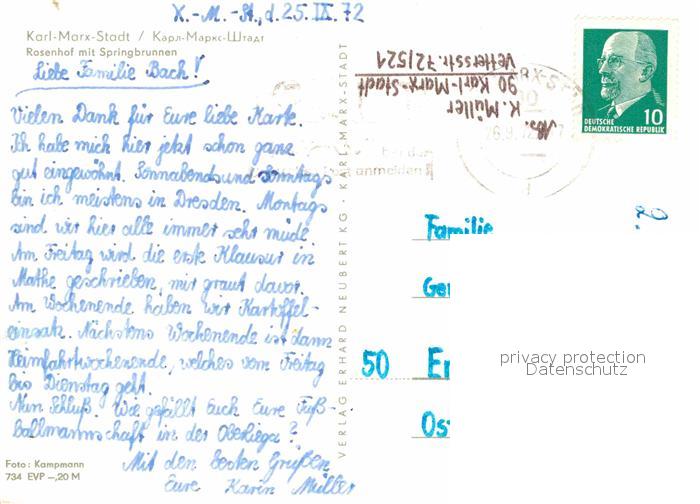 K.-M.-St., d. 25. IX. 72
Karl-Marx-Stadt / Карл-Маркс-Штадт
Rosenhof mit Springbrunnen
Liebe Familie Bach!
Vielen Dank für Eure liebe Karte.
Ich habe mich hier jetzt schon ganz
gut eingewöhnt. Sonnabends und Sonntags
bin ich meistens in Dresden. Montags
sind wir hier alle immer sehr müde
Am Freitag wird die erste Klausur in
Mathe geschrieben, mir graut davor.
Am Wochenende haben wir Kartoffel-
einsatz. Nächstens Wochenende ist dann
Heimfahrtwochenende, welches vom Freitag
bis Dienstag geht.
Nun Schluß. Wie gefällt Euch Eure Fuß-
ballmannschaft in der Oberliga?
Mit den besten Grüßen
Eure Karin Müller
Foto: Kampmann
734 EVP -,20 M
VERLAG ERHARD NEUBERT KG · KARL-MARX-STADT
Abs.
K. Müller
90 Karl-Marx-Stadt
Vettersstr. 72/521
anmelden
26.9.72
10
DEUTSCHE
DEMOKRATISCHE REPUBLIK
Familie
Ge
50 Er
Os
privacy protection
Datenschutz